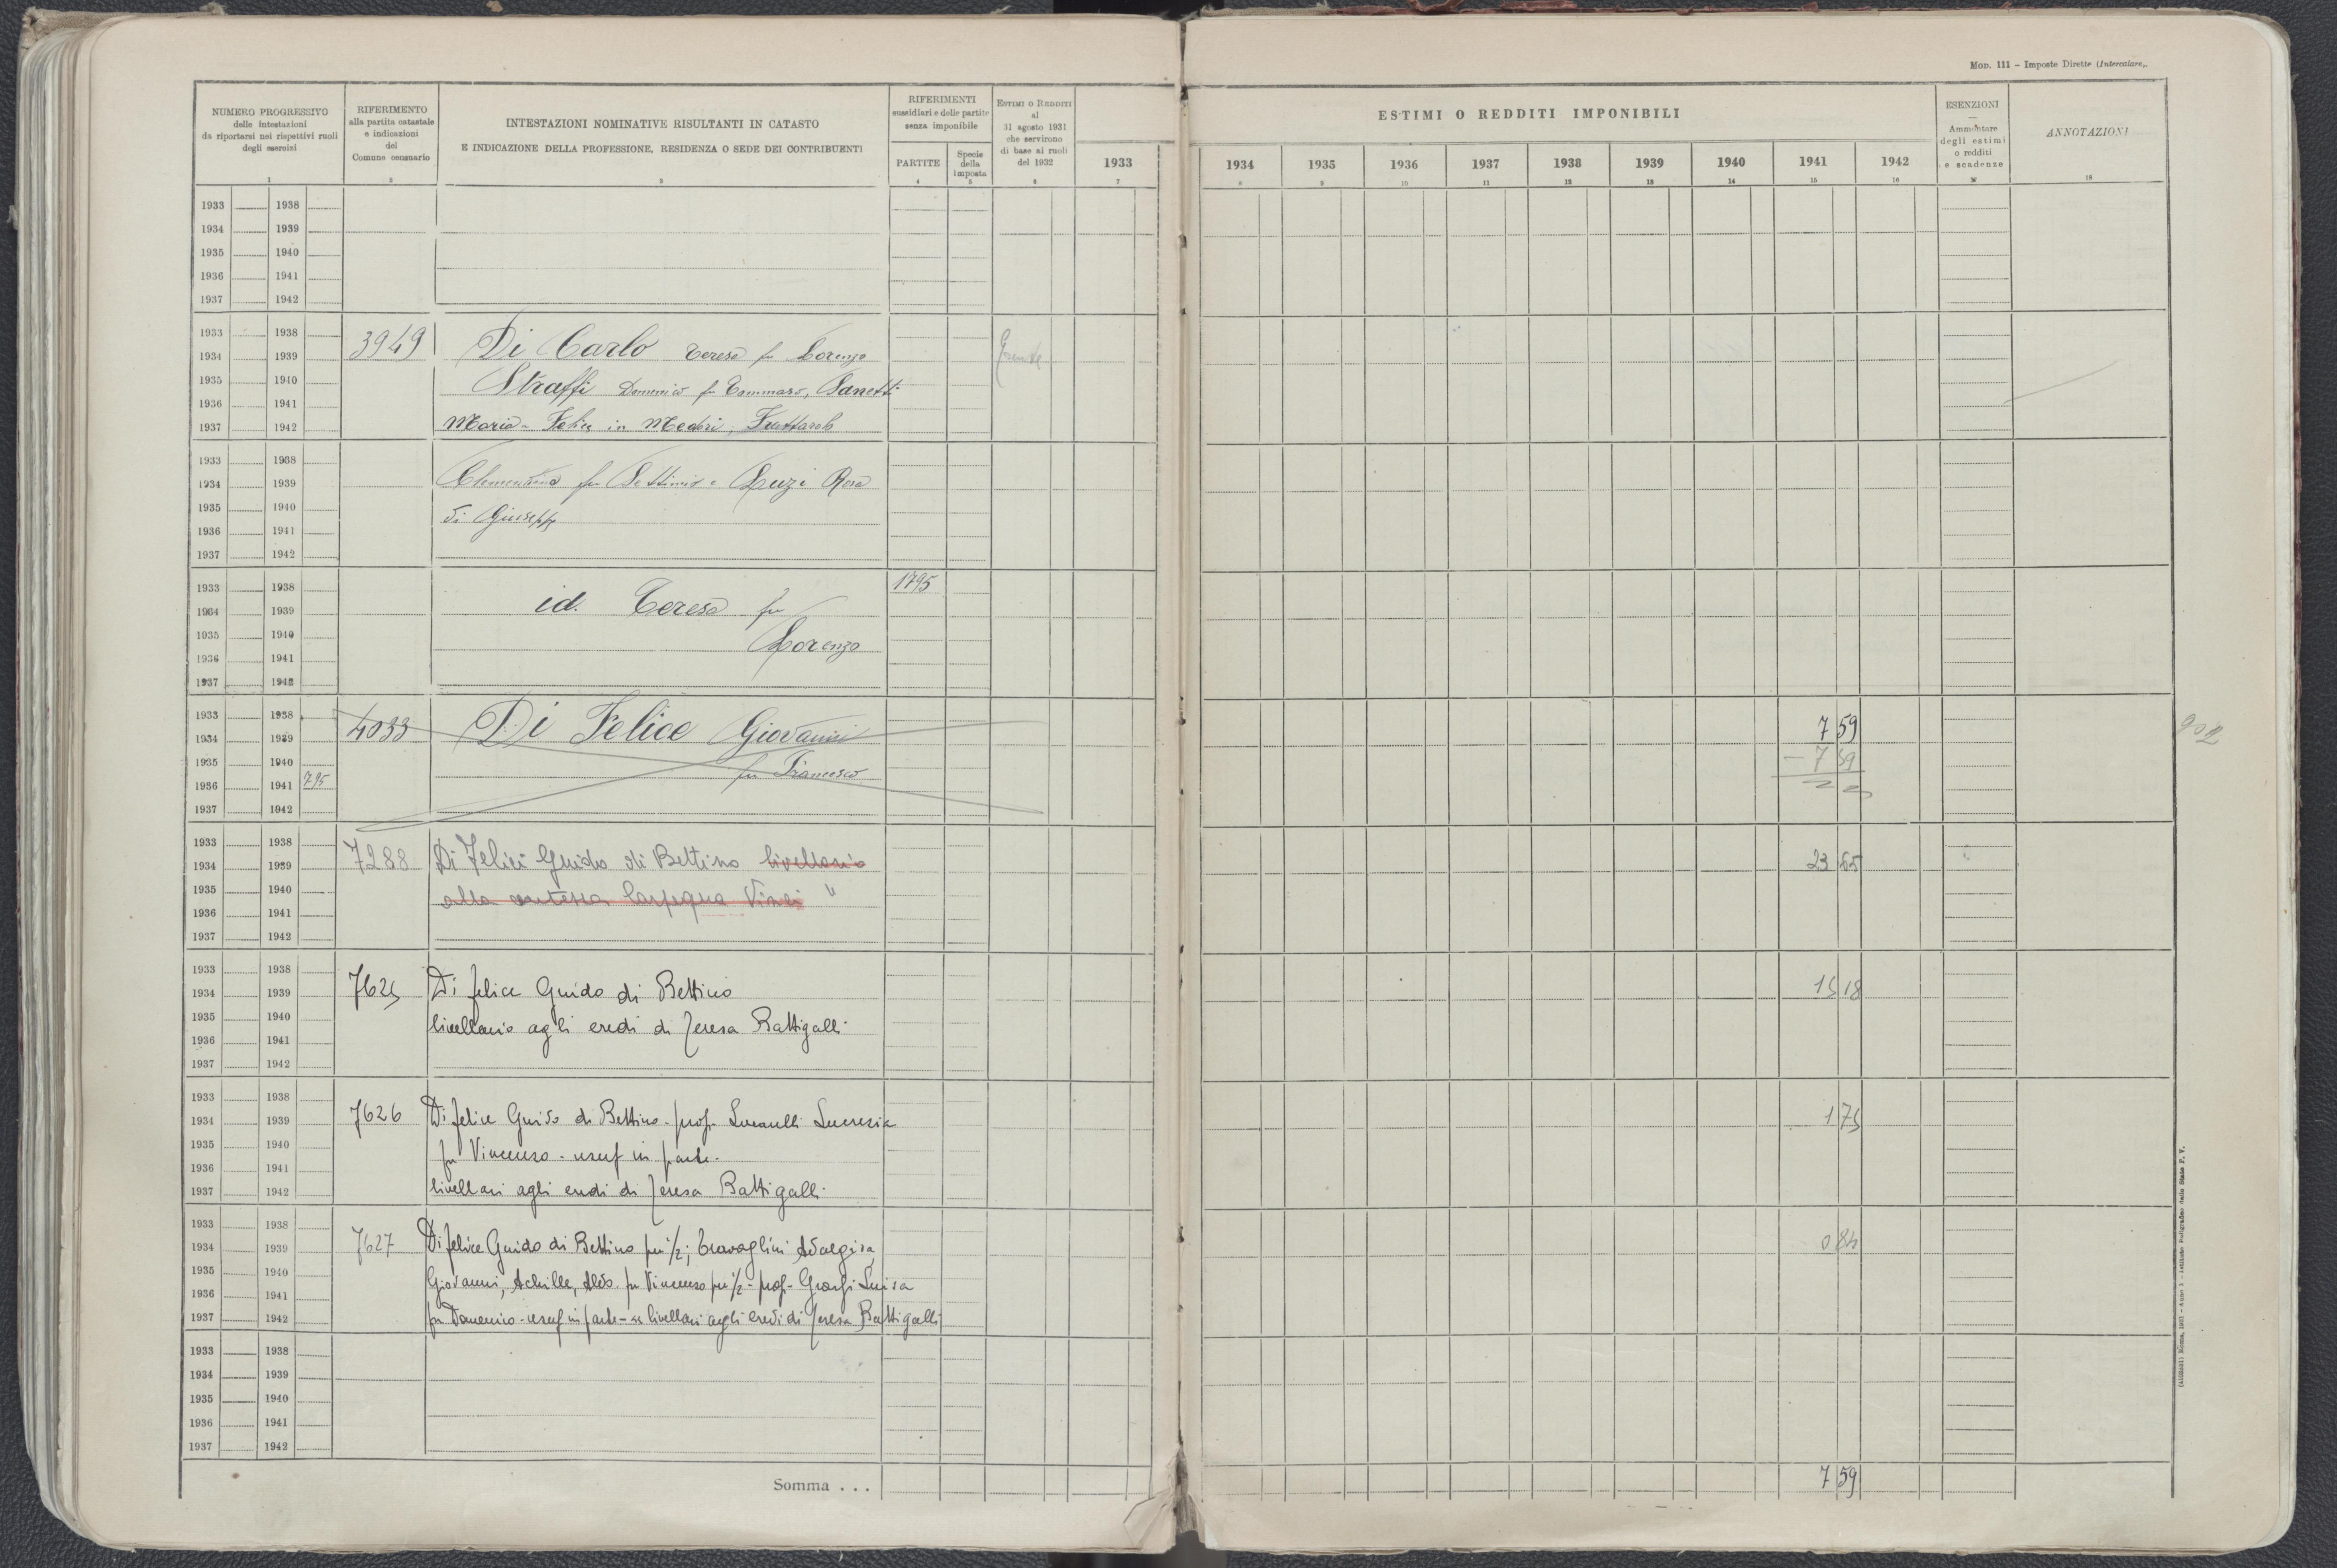 MOD. 111 – Imposte Dirette (Intercalare).
NUMERO PROGRESSIVO
delle intestazioni
da riportarsi nei rispettivi ruoli
degli esercizi
1
RIFERIMENTO
alla partita catastale
e indicazioni
del
Comune censuario
2
INTESTAZIONI NOMINATIVE RISULTANTI IN CATASTO
E INDICAZIONE DELLA PROFESSIONE, RESIDENZA O SEDE DEI CONTRIBUENTI
3
RIFERIMENTI
sussidiari e delle partite
senza imponibile
PARTITE
4
Specie
della
imposta
5
ESTIMI O REDDITI
al
31 agosto 1931
che servirono
di base ai ruoli
del 1932
6
1933
7
ESTIMI O REDDITI IMPONIBILI
1934 1935 1936 1937 1938 1939 1940 1941 1942
8 9 10 11 12 13 14 15 16
ESENZIONI
—
Ammontare
degli estimi
o redditi
e scadenze
ANNOTAZIONI
18
1933 1938
1934 1939
1935 1940
1936 1941
1937 1942
1933 1938
1934 1939 3949 Di Carlo Teresa fu Lorenzo
1935 1940 Straffi Domenico fu Tommaso, Sanetti
1936 1941
1937 1942 Maria Felice in Medori, Frattaroli
1933 1938
1934 1939 Clementina fu Settimio e Luzi Rosa
1935 1940 di Giuseppe
1936 1941
1937 1942
1933 1938 1795
1934 1939 id. Teresa fu
1935 1940 Lorenzo
1936 1941
1937 1942
1933 1938
1934 1939 4033 Di Felice Giovanni 7 59 902
1935 1940 fu Francesco – 7 59
1936 1941 795
1937 1942
1933 1938
1934 1939 7288 Di Felici Guido di Bettino livellario 23 65
1935 1940
1936 1941 alla contessa Carpegna Vinci "
1937 1942
1933 1938
1934 1939 7625 Di Felice Guido di Bettino 15 18
1935 1940 livellario agli eredi di Teresa Battigalli
1936 1941
1937 1942
1933 1938
1934 1939 7626 Di Felice Guido di Bettino - prop. Lucarelli Lucrezia 1 75
1935 1940 fu Vincenzo - usuf in parte -
1936 1941
1937 1942 livellari agli eredi di Teresa Battigalli
1933 1938
1934 1939 7627 Di Felice Guido di Bettino per 1/2; Travaglini Adalgisa, 0 84
1935 1940 Giovanni, Achille, Aldo fu Vincenzo per 1/2 - prop - Giorgi Luisa
1936 1941
1937 1942 fu Domenico - usuf in parte - livellari agli eredi di Teresa Battigalli
1933 1938
1934 1939
1935 1940
1936 1941
1937 1942
Somma . . . 7 59